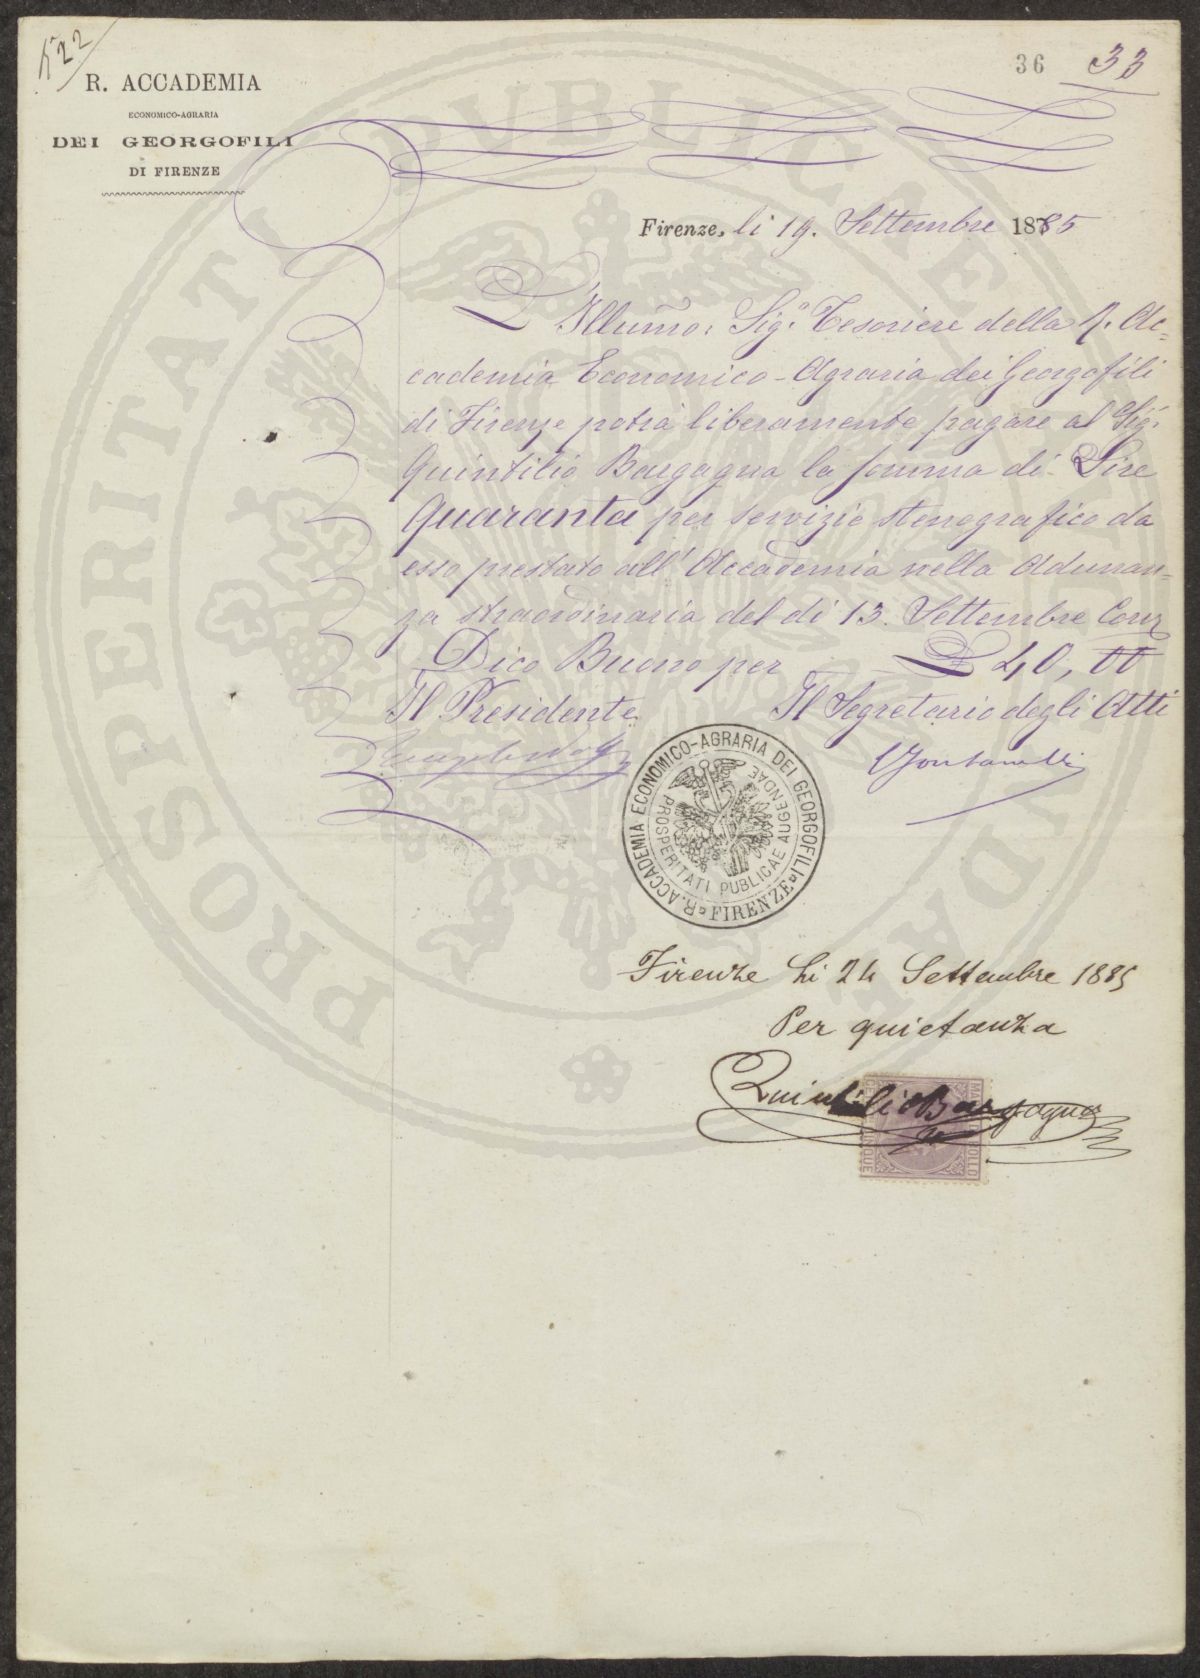 N° 22
36 33
R. ACCADEMIA
ECONOMICO-AGRARIA
DEI GEORGOFILI
DI FIRENZE
Firenze, li 19. Settembre 1885
L'Illumo: Sig.° Tesoriere della R. Ac-
cademia Economico-Agraria dei Georgofili
di Firenze potrà liberamente pagare al Sig.
Quintilio Bargagna la somma di Lire
Quaranta per servizio stenografico da
esso prestato all'Accademia nella Adunan-
za straordinaria del dì 13. Settembre Corr
Dico Buono per L 40, 00
Il Presidente Il Segretario degli Atti
R. ACCADEMIA ECONOMICO-AGRARIA DEI GEORGOFILI
FIRENZE
PROSPERITATI PUBLICAE AUGENDAE
Firenze li 24 Settembre 1885
Per quietanza
Quintilio Bargagna
PROSPERITATI PVBLICAE AVGENDAE